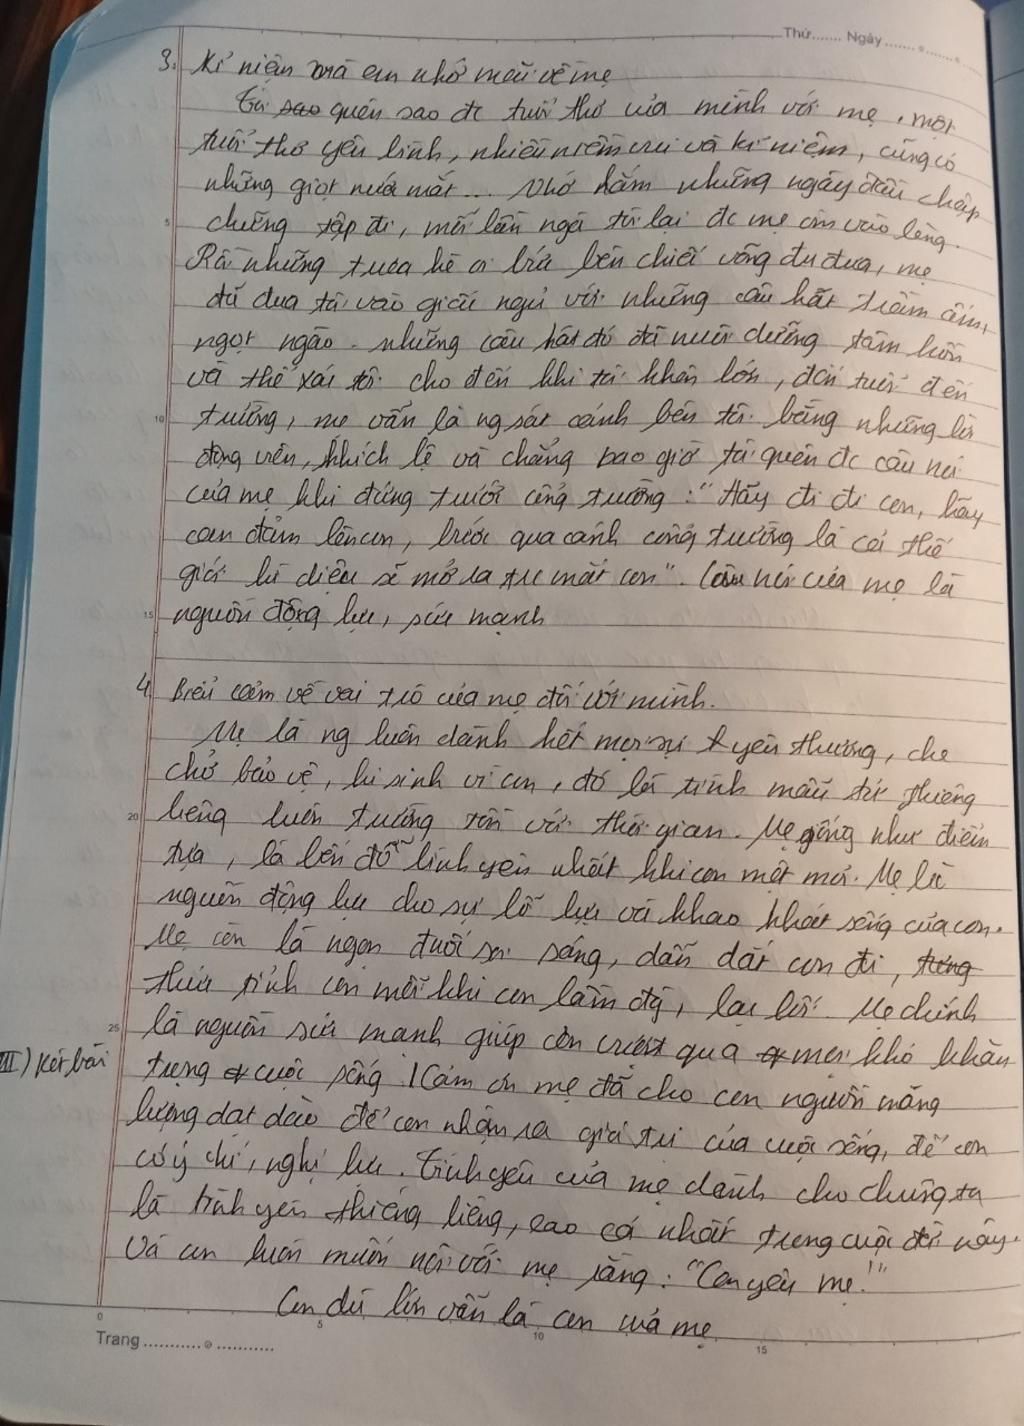 Thứ....... Ngày.......
3. Kỉ niệm mà em nhớ mãi về mẹ
Tôi quên sao đc tuổi thơ của mình với mẹ, một
tuổi thơ yên bình, nhiều niềm vui và kỉ niệm, cũng có
những giọt nước mắt... Nhớ lắm những ngày đầu chập
chững tập đi, mỗi lần ngã tôi lại đc mẹ ôm vào lòng.
Rồi những trưa hè oi bức bên chiếc võng đu đưa, mẹ
đã đưa tôi vào giấc ngủ với những câu hát trầm ấm,
ngọt ngào. những câu hát đó đã nuôi dưỡng tâm hồn
và thể xác tôi cho đến khi tôi khôn lớn, đến tuổi đến
trường, mẹ vẫn là ng sát cánh bên tôi bằng những lời
động viên, khích lệ và chẳng bao giờ tôi quên đc câu nói
của mẹ khi đứng trước cổng trường: "Hãy đi đi con, hãy
can đảm lên con, bước qua cánh cổng trường là cả thế
giới kì diệu sẽ mở ra trc mắt con". Câu nói của mẹ là
nguồn động lực, sức mạnh
4. Biểu cảm về vai trò của mẹ đối với mình.
Mẹ là ng luôn dành hết mọi sự yêu thương, che
chở bảo vệ, hi sinh vì con, đó là tình mẫu tử thiêng
liêng luôn trường tồn với thời gian. Mẹ giống như điểm
tựa, là bến đỗ bình yên nhất khi con mệt mỏi. Mẹ là
nguồn động lực cho sự lỗ lực và khao khát sống của con.
Mẹ còn là ngọn đuốc soi sáng, dẫn dắt con đi,
thức tỉnh con mỗi khi con lầm đg, lạc lối. Mẹ chính
là nguồn sức mạnh giúp con vượt qua mọi khó khăn
III) Kết bài trong cuộc sống! Cảm ơn mẹ đã cho con nguồn năng
lượng dạt dào để con nhận ra giá trị của cuộc sống, để con
có ý chí, nghị lực. Tình yêu của mẹ dành cho chúng ta
là tình yêu thiêng liêng, cao cả nhất trong cuộc đời này.
Và con luôn muốn nói với mẹ rằng: "Con yêu mẹ!"
Con dù lớn vẫn là con của mẹ
0 5 10 15
Trang